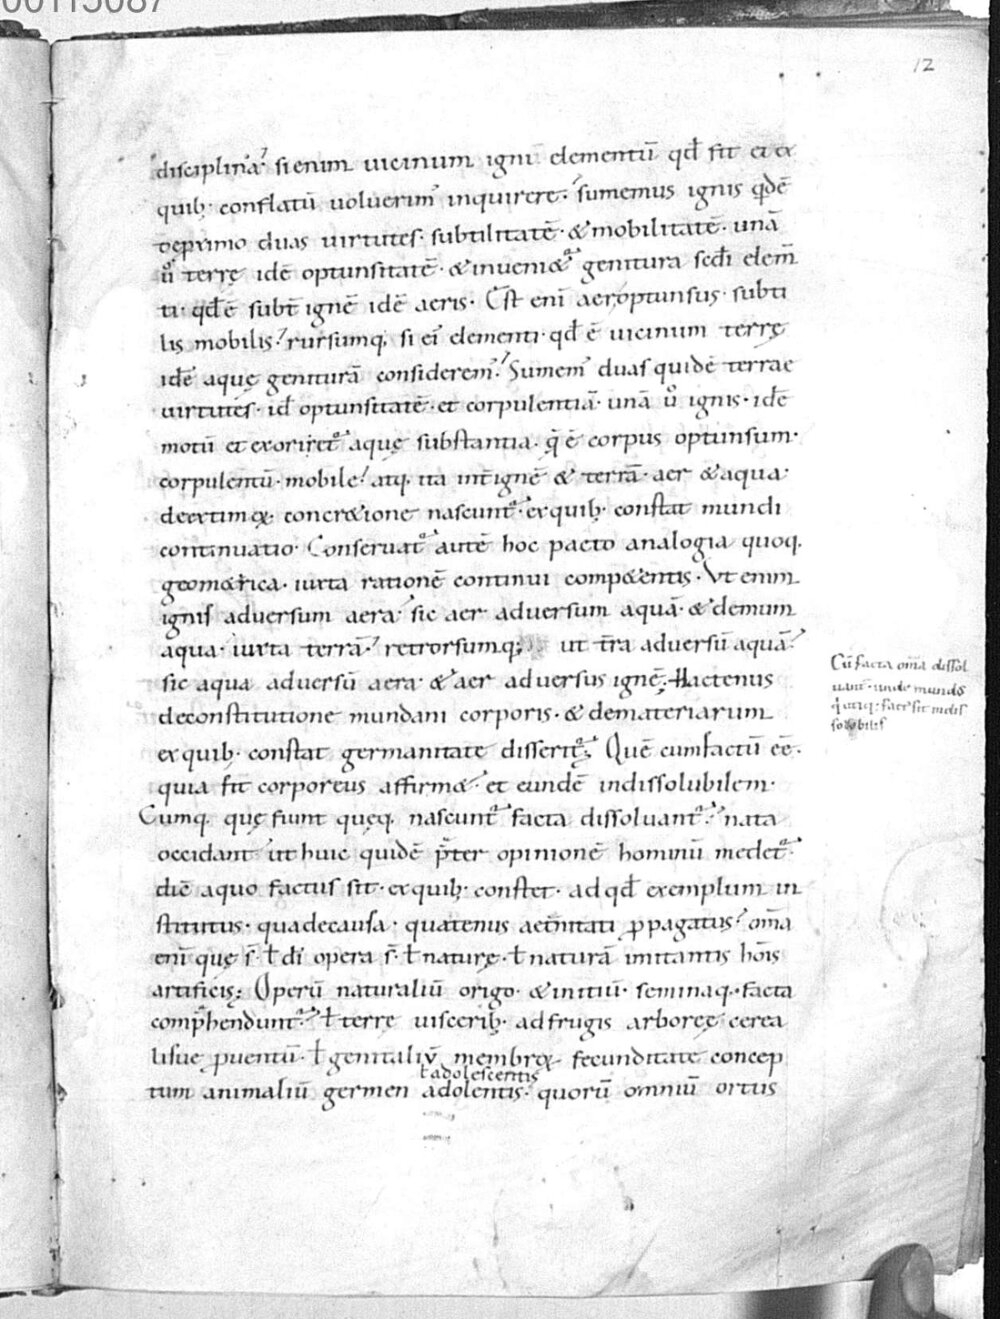 00115087
12
disciplina. si enim uicinum igni elementū qđ sit et ex
quib; conflatū uoluerim' inquirere. sumemus ignis qdē
de proximo duas uirtutes. subtilitatē. & mobilitatē. unā
ů terrę idē optunsitatē. & inueni& genitura scđi elem̄
ti. qđ ē subt̄ ignē idē aeris. Ēst eni aer optunsus. subti
lis mobilis. rursumq; si ei' elementi. qđ ē uicinum terrę
idē aquę geniturā considerem'. Sumem' duas quidē terrae
uirtutes. id optunsitatē. et corpulentiā. unā ů ignis. idē
motū et exoriret aquę substantia. q̄ ē corpus optunsum.
corpulentū. mobile. atq. ita int̄ ignē & terrā. aer & aqua
de extimoꝝ concr&ione nascunt. ex quib; constat mundi
continuatio. Conseruat autē hoc pacto analogia quoq.
geom&rica. iuxta rationē continui comp&entis. Vt enim
ignis aduersum aera. sic aer aduersum aquā. & demum
aqua. iuxta terrā. retrorsumq; ut tr̄a aduersū aquā
sic aqua aduersū aera. & aer aduersus ignē; Hactenus
de constitutione mundani corporis. & de materiarum
ex quib; constat germanitate disserit. Quē cum factū eē.
quia sit corporeus affirm&. et eundē indissolubilem.
Cumq. quę fiunt quęq. nascunt facta dissoluant. nata
occidant ut huic quidē p̄ter opinionē hominū medet.
diē a quo factus sit. ex quib; constet. ad qđ exemplum in
stitutus. qua de causa. quatenus aet̄nitati ꝓpagatus. om̄a
eni quę s̄. ł di opera s̄. ł naturę. ł naturā imitantis hoīs
artificis; Operū naturaliū origo. & initiū. seminaq. facta
comp̄hendunt. ł terrę uiscerib; ad frugis arboreę cerea
lisue ꝓuentū. ł genitaliū membroꝝ fecunditate concep
ł adolescentis
tum animaliū germen adolentis. quorū omniū ortus
Cū facta om̄a dissol
uant. unde mundꝰ
q̄ utiq; factꝰ sit indis
solubilis